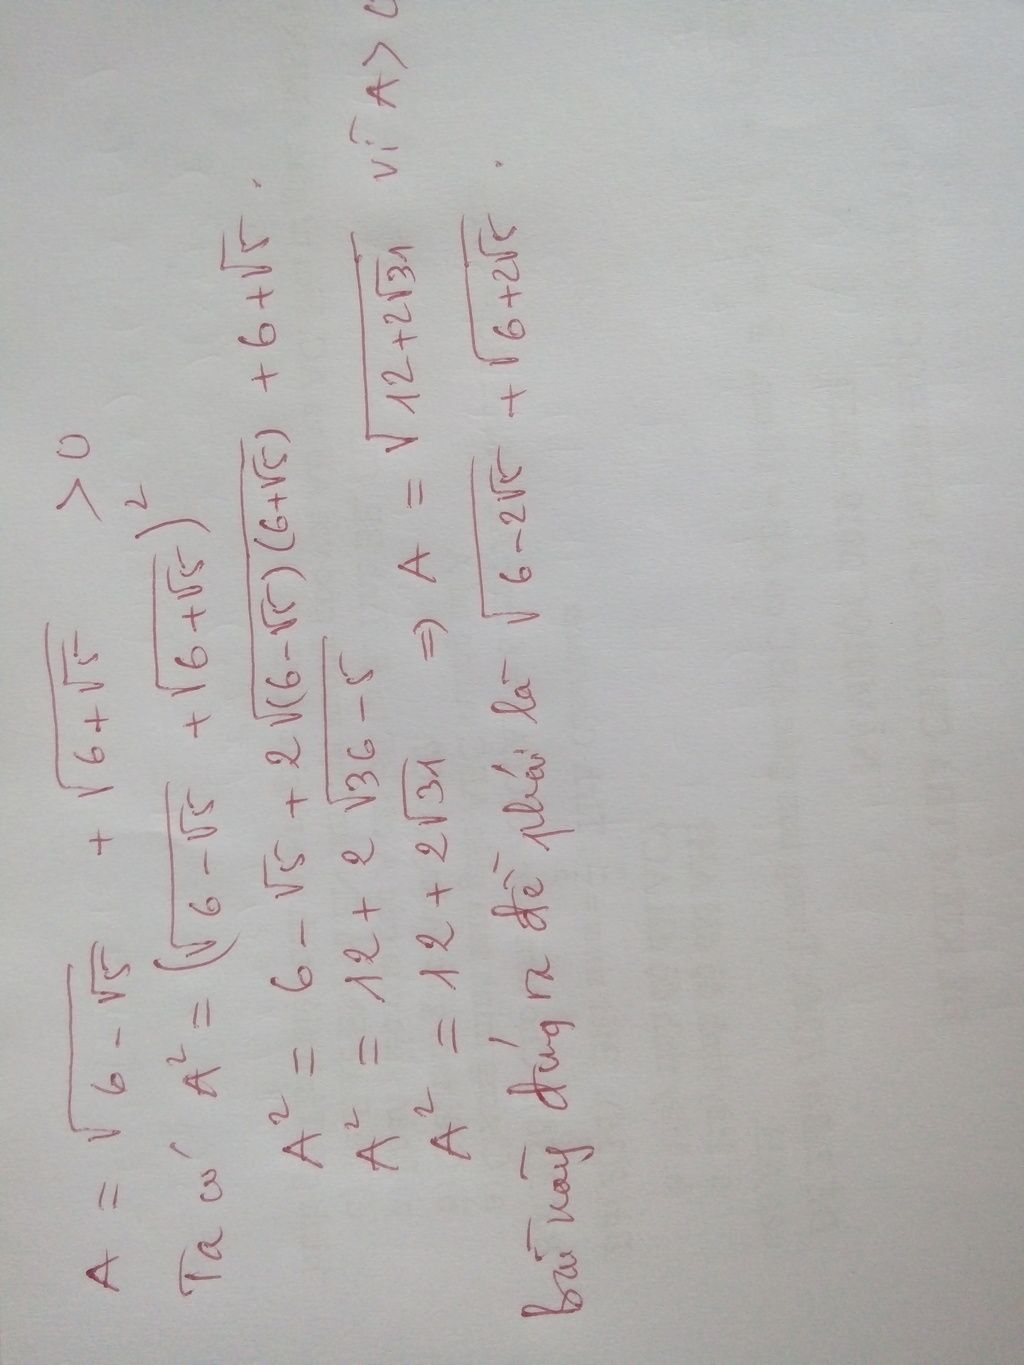 A = √(6 - √5) + √(6 + √5) > 0
Ta có A² = (√(6 - √5) + √(6 + √5))²
A² = 6 - √5 + 2√((6 - √5)(6 + √5)) + 6 + √5.
A² = 12 + 2√(36 - 5)
A² = 12 + 2√31 ⇒ A = √(12 + 2√31) vì A > 0
bài này đúng ra đề phải là √(6 - 2√5) + √(6 + 2√5).